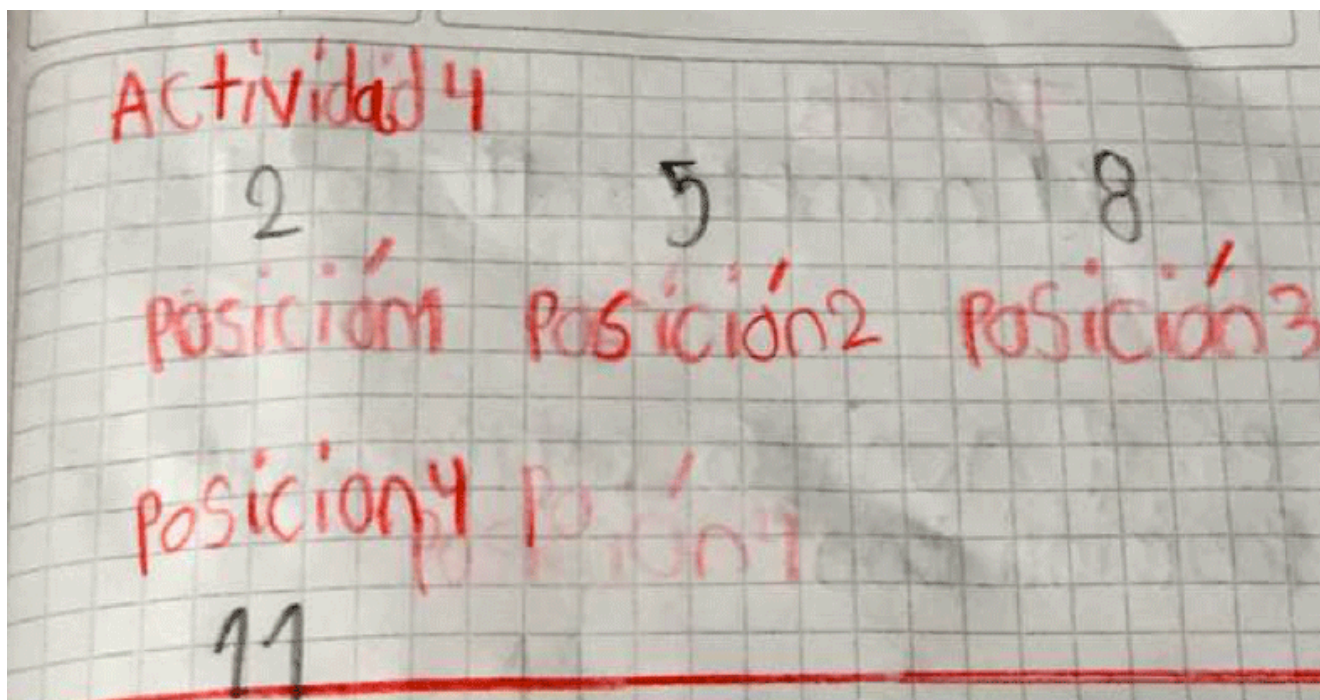 Actividad 4
2 5 8
Posición1 Posición2 Posición3
Posicion4 Po
11